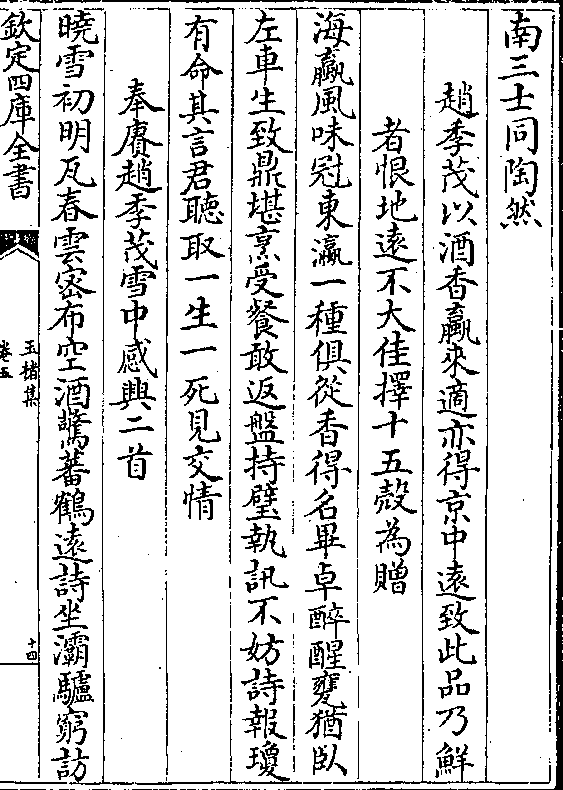 南三士同陶然
趙季茂以酒香蠃來適亦得京中遠致此品乃鮮
者恨地遠不大佳擇十五殻為贈
海蠃風味冠東瀛一種俱從香得名畢卓醉醒甕猶臥
左車生致鼎堪烹受餐敢返盤持璧執訊不妨詩報瓊
有命其言君聽取一生一死見交情
奉賡趙季茂雪中感興二首
曉雪初明瓦春雲密布空酒驚蕃鶴遠詩坐灞驢窮訪
欽定四庫全書
玉楮集
卷五
十四